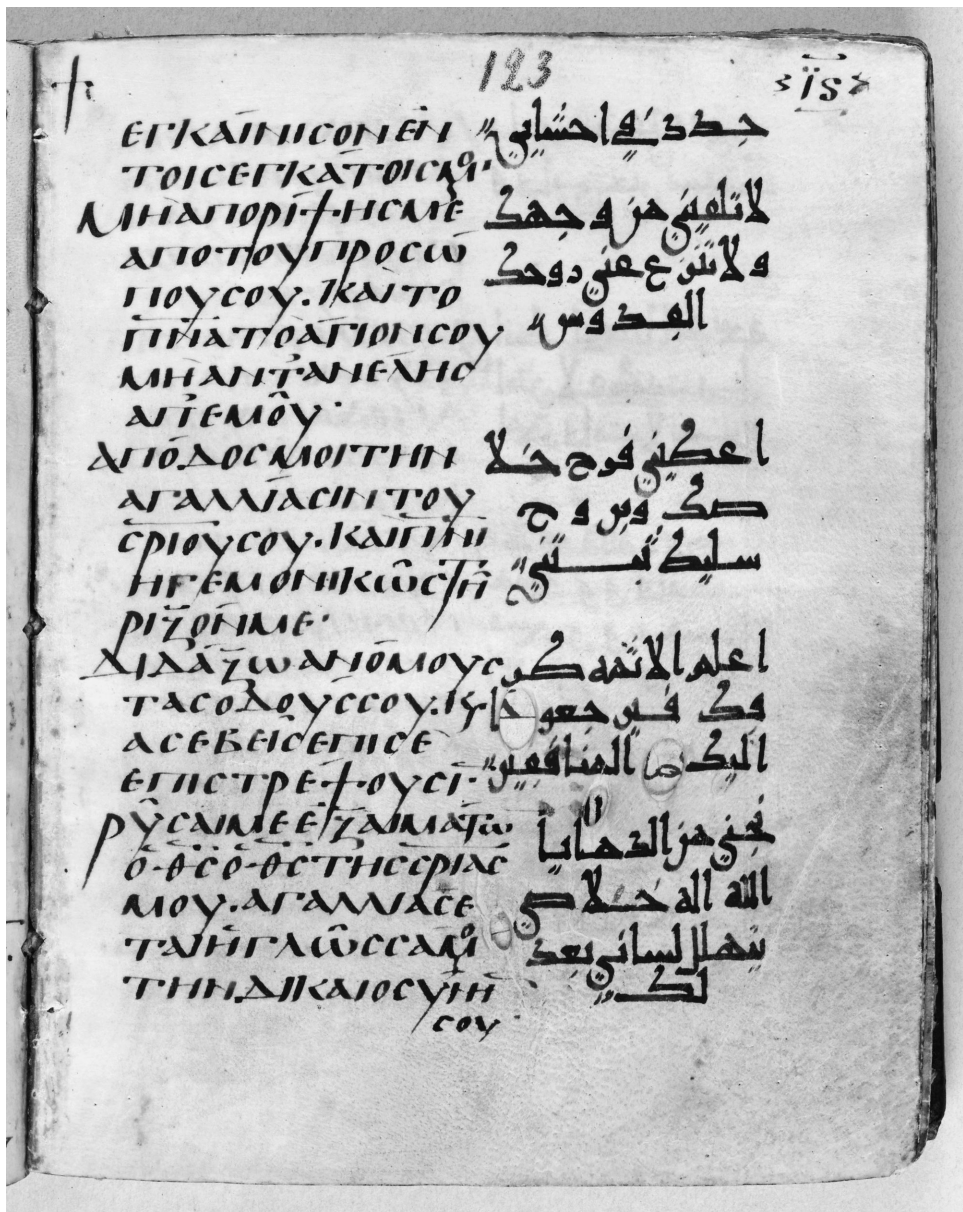 123
ΕΓΚΑΙΝΙCΟΝΕΝ
ΤΟΙCΕΓΚΑΤΟΙCΜȢ·
ΜΗΑΠΟΡΙΨΗCΜΕ
ΑΠΟΤΟΥΠΡΟCΩ
ΠΟΥCΟΥ. ΚΑΙΤΟ
ΠΝΑΤΟΑΓΙΟΝCΟΥ
ΜΗΑΝΤΑΝΕΛΗC
ΑΠΕΜΟΥ·
ΑΠΟΔΟCΜΟΙΤΗΝ
ΑΓΑΛΛΙΑCΙΝΤΟΥ
CΡΙΟΥCΟΥ. ΚΑΙΠΝΙ
ΗΓΕΜΟΝΙΚΩCΤΗ
ΡΙΖΟΝΜΕ·
ΔΙΔΑΖΩΑΝΟΜΟΥC
ΤΑCΟΔΟΥCCΟΥ. Κ,
ΑCΕΒΕΙCΕΠΙCΕ
ΕΠΙCΤΡΕΨΟΥCΙ·
ΡΥCΑΙΜΕΕΖΑΙΜΑΤΩ
ΟΘCΟΘCΤΗCCΡΙΑC
ΜΟΥ. ΑΓΑΛΛΙΑCΕ
ΤΑΙΗΓΛΩCCΑΜȢ
ΤΗΝΔΙΚΑΙΟCΥΝΗ
CΟΥ
جدد في احشايي
لا تلقيني من وجهك
ولا تنزع عني روحك
القدوس
اعطيني فرح خلا
صك وبروح
سليط ثبتني
اعلم الاثمه طر
قك فيرجعو
اليك المنافقين
نجني من الدما يا
الله اله خلاص
يتهلل لساني بعد
لك